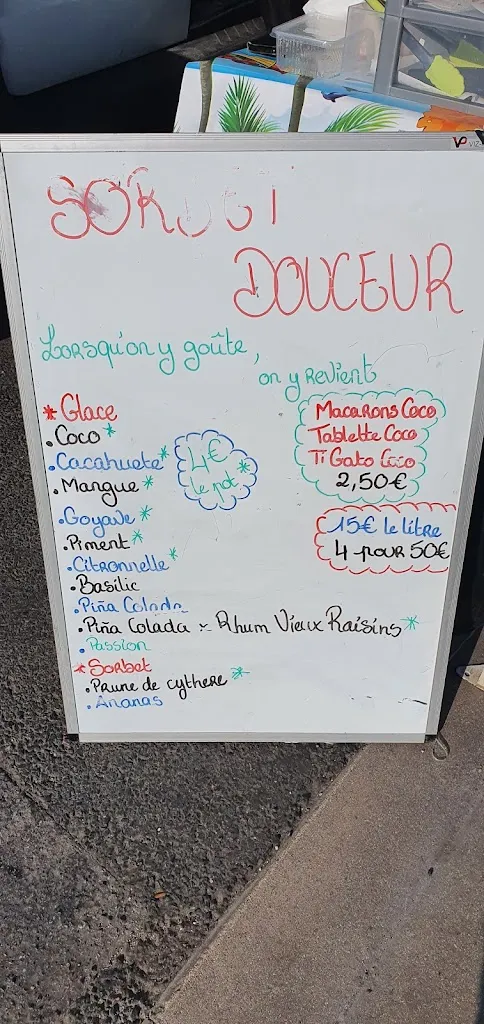 DOUCEUR
Lorsqu'on y goûte,
on y revient
* Glace
. Coco *
. Cacahuete *
. Mangue *
. Goyave *
. Piment *
. Citronnelle *
. Basilic
. Piña Colada
. Piña Colada x Rhum Vieux Raisins *
. Passion
* Sorbet
. Prune de cythere *
. Ananas
4€
le pot *
Macarons Coco
Tablette Coco
Ti Gato Coco
2,50€
15€ le litre
4 pour 50€